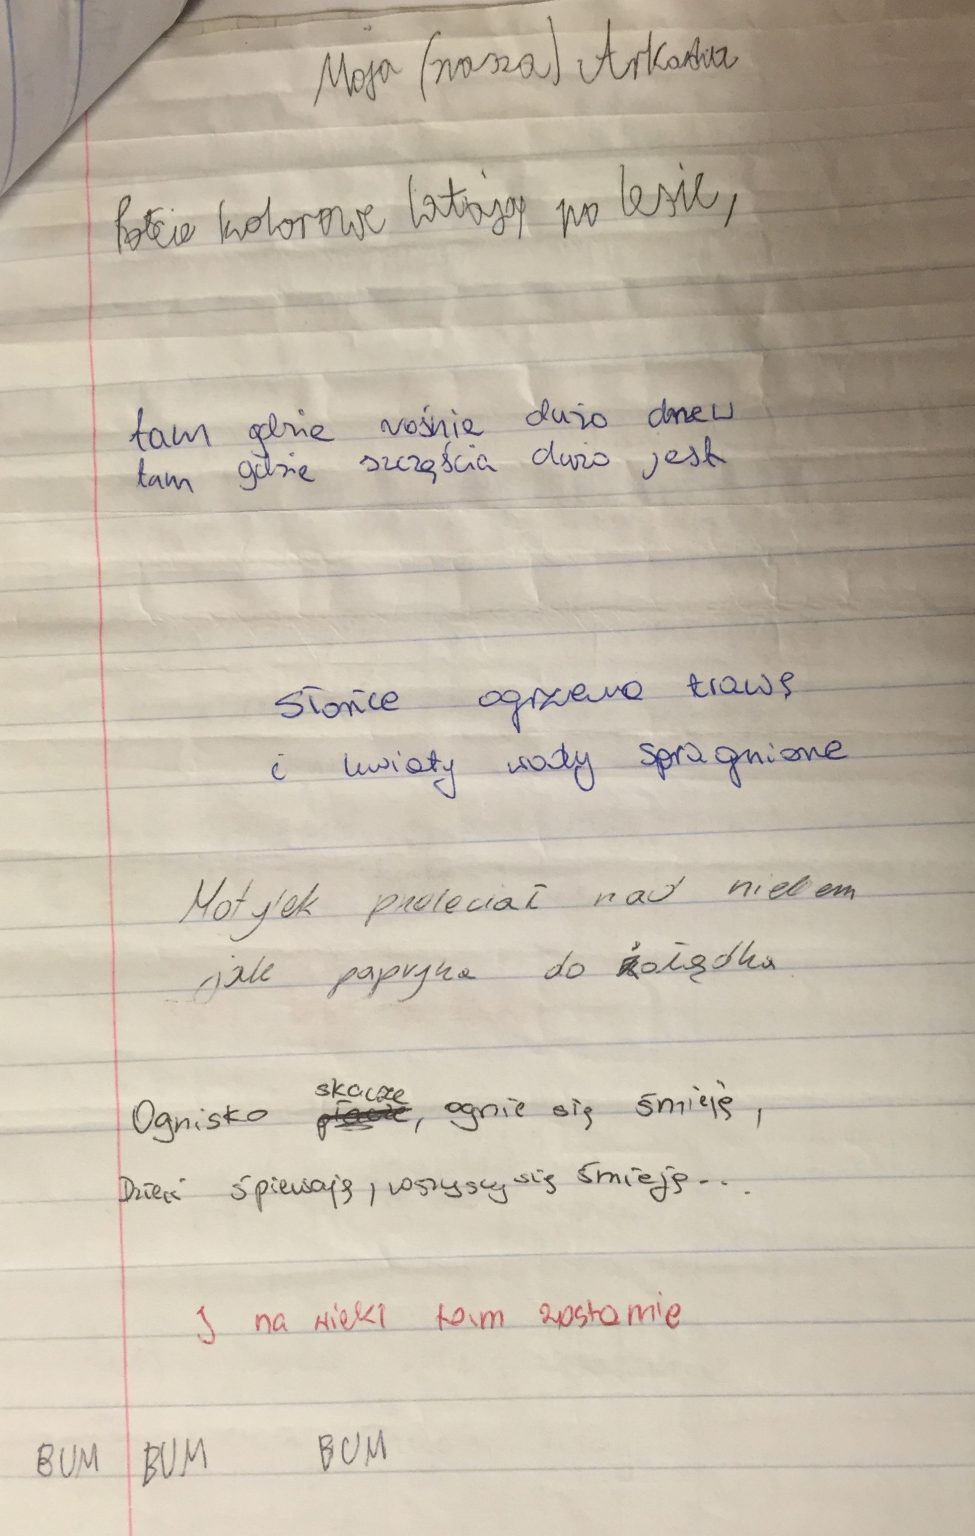 Moja (nasza) Arkadia
kolorowe latają po lesie,
tam gdzie rośnie dużo drzew
tam gdzie szczęścia dużo jest
słońce ogrzewa trawę
i kwiaty wody spragnione
Motylek przeleciał nad niebem
jak papryka do żołądka
skacze
Ognisko płacze, ognie się śmieją,
Dzieci śpiewają, wszyscy się śmieją...
I na wieki tam zostanie
BUM BUM BUM